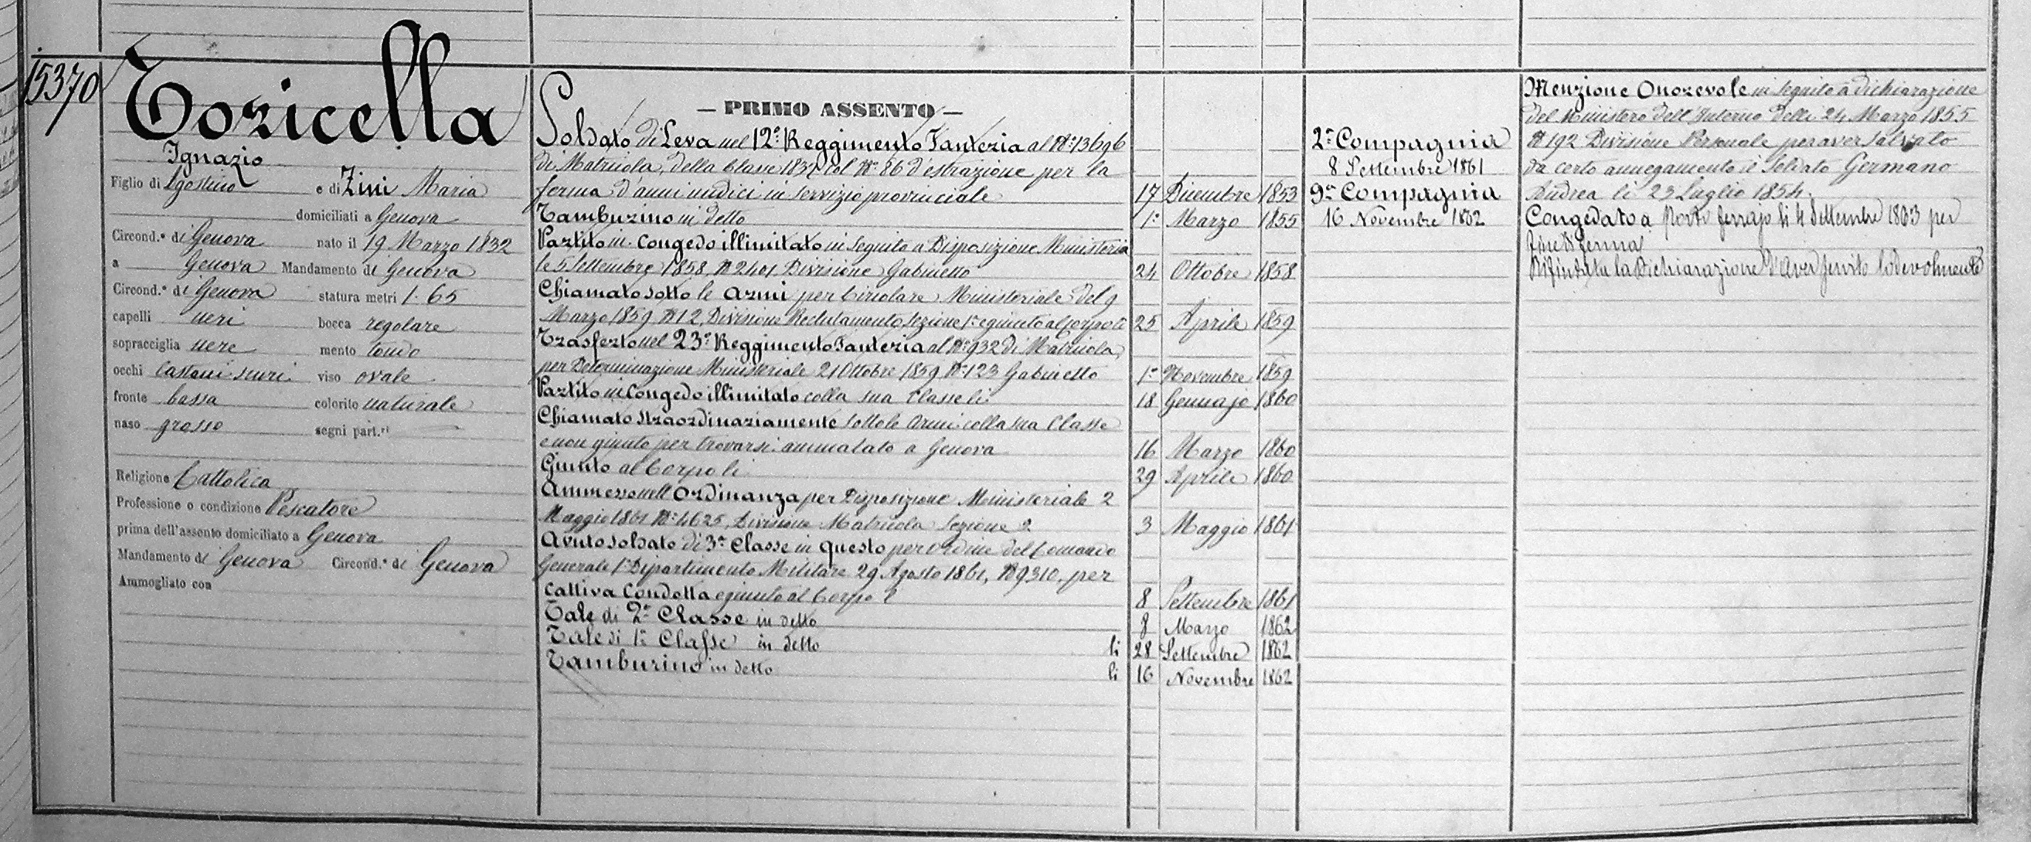 15370
Toricella
Ignazio
Figlio di Agostino e di Zini Maria
domiciliati a Genova
Circond.º di Genova nato il 19 Marzo 1832
a Genova Mandamento di Genova
Circond.º di Genova statura metri 1. 65
capelli neri bocca regolare
sopracciglia nere mento tondo
occhi castani scuri viso ovale
fronte bassa colorito naturale
naso grosso segni part.ri
Religione Cattolica
Professione o condizione Pescatore
prima dell'assento domiciliato a Genova
Mandamento di Genova Circond.º di Genova
Ammogliato con
— PRIMO ASSENTO —
Soldato di Leva nel 12º Reggimento Fanteria al Nº 13696
di Matricola, della Classe 1832 col Nº 86 d'estrazione per la
ferma d'anni undici in servizio provinciale 17 Dicembre 1853
Tamburino in detto 1º Marzo 1855
Partito in Congedo illimitato in seguito a Disposizione Ministeria
le 5 Settembre 1858, Nº 2401 Divisione Gabinetto 24 Ottobre 1858
Chiamato sotto le Armi per Circolare Ministeriale del 9
Marzo 1859, Nº 12, Divisione Reclutamento Sezione 1ª e giunto al Corpo li 25 Aprile 1859
Trasferto nel 23º Reggimento Fanteria al Nº 932 di Matricola,
per Determinazione Ministeriale 21 Ottobre 1859 Nº 123 Gabinetto 1º Novembre 1859
Partito in Congedo illimitato colla sua Classe li 18 Gennajo 1860
Chiamato straordinariamente sotto le Armi colla sua Classe
e non giunto per trovarsi ammalato a Genova 16 Marzo 1860
Giunto al Corpo li 29 Aprile 1860
Ammesso nell'Ordinanza per Disposizione Ministeriale 2
Maggio 1861 Nº 4625, Divisione Matricola Sezione 2 3 Maggio 1861
Avuto soldato di 3ª Classe in questo per Ordine del Comando
Generale 1º Dipartimento Militare 29 Agosto 1861, Nº 9310, per
cattiva Condotta e giunto al Corpo 8 Settembre 1861
Tale di 2ª Classe in detto 8 Marzo 1862
Tale di 1ª Classe in detto li 28 Settembre 1862
Tamburino in detto li 16 Novembre 1862
2ª Compagnia
8 Settembre 1861
9ª Compagnia
16 Novembre 1862
Menzione Onorevole in seguito a dichiarazione
del Ministero dell'Interno delli 24 Marzo 1855
Nº 192 Divisione Personale per aver salvato
da certo annegamento il Soldato Germano
Andrea li 23 Luglio 1854.
Congedato a Porto ferrajo li 4 Settembre 1863 per
fine di ferma
Rifiutata la Dichiarazione d'aver servito lodevolmente